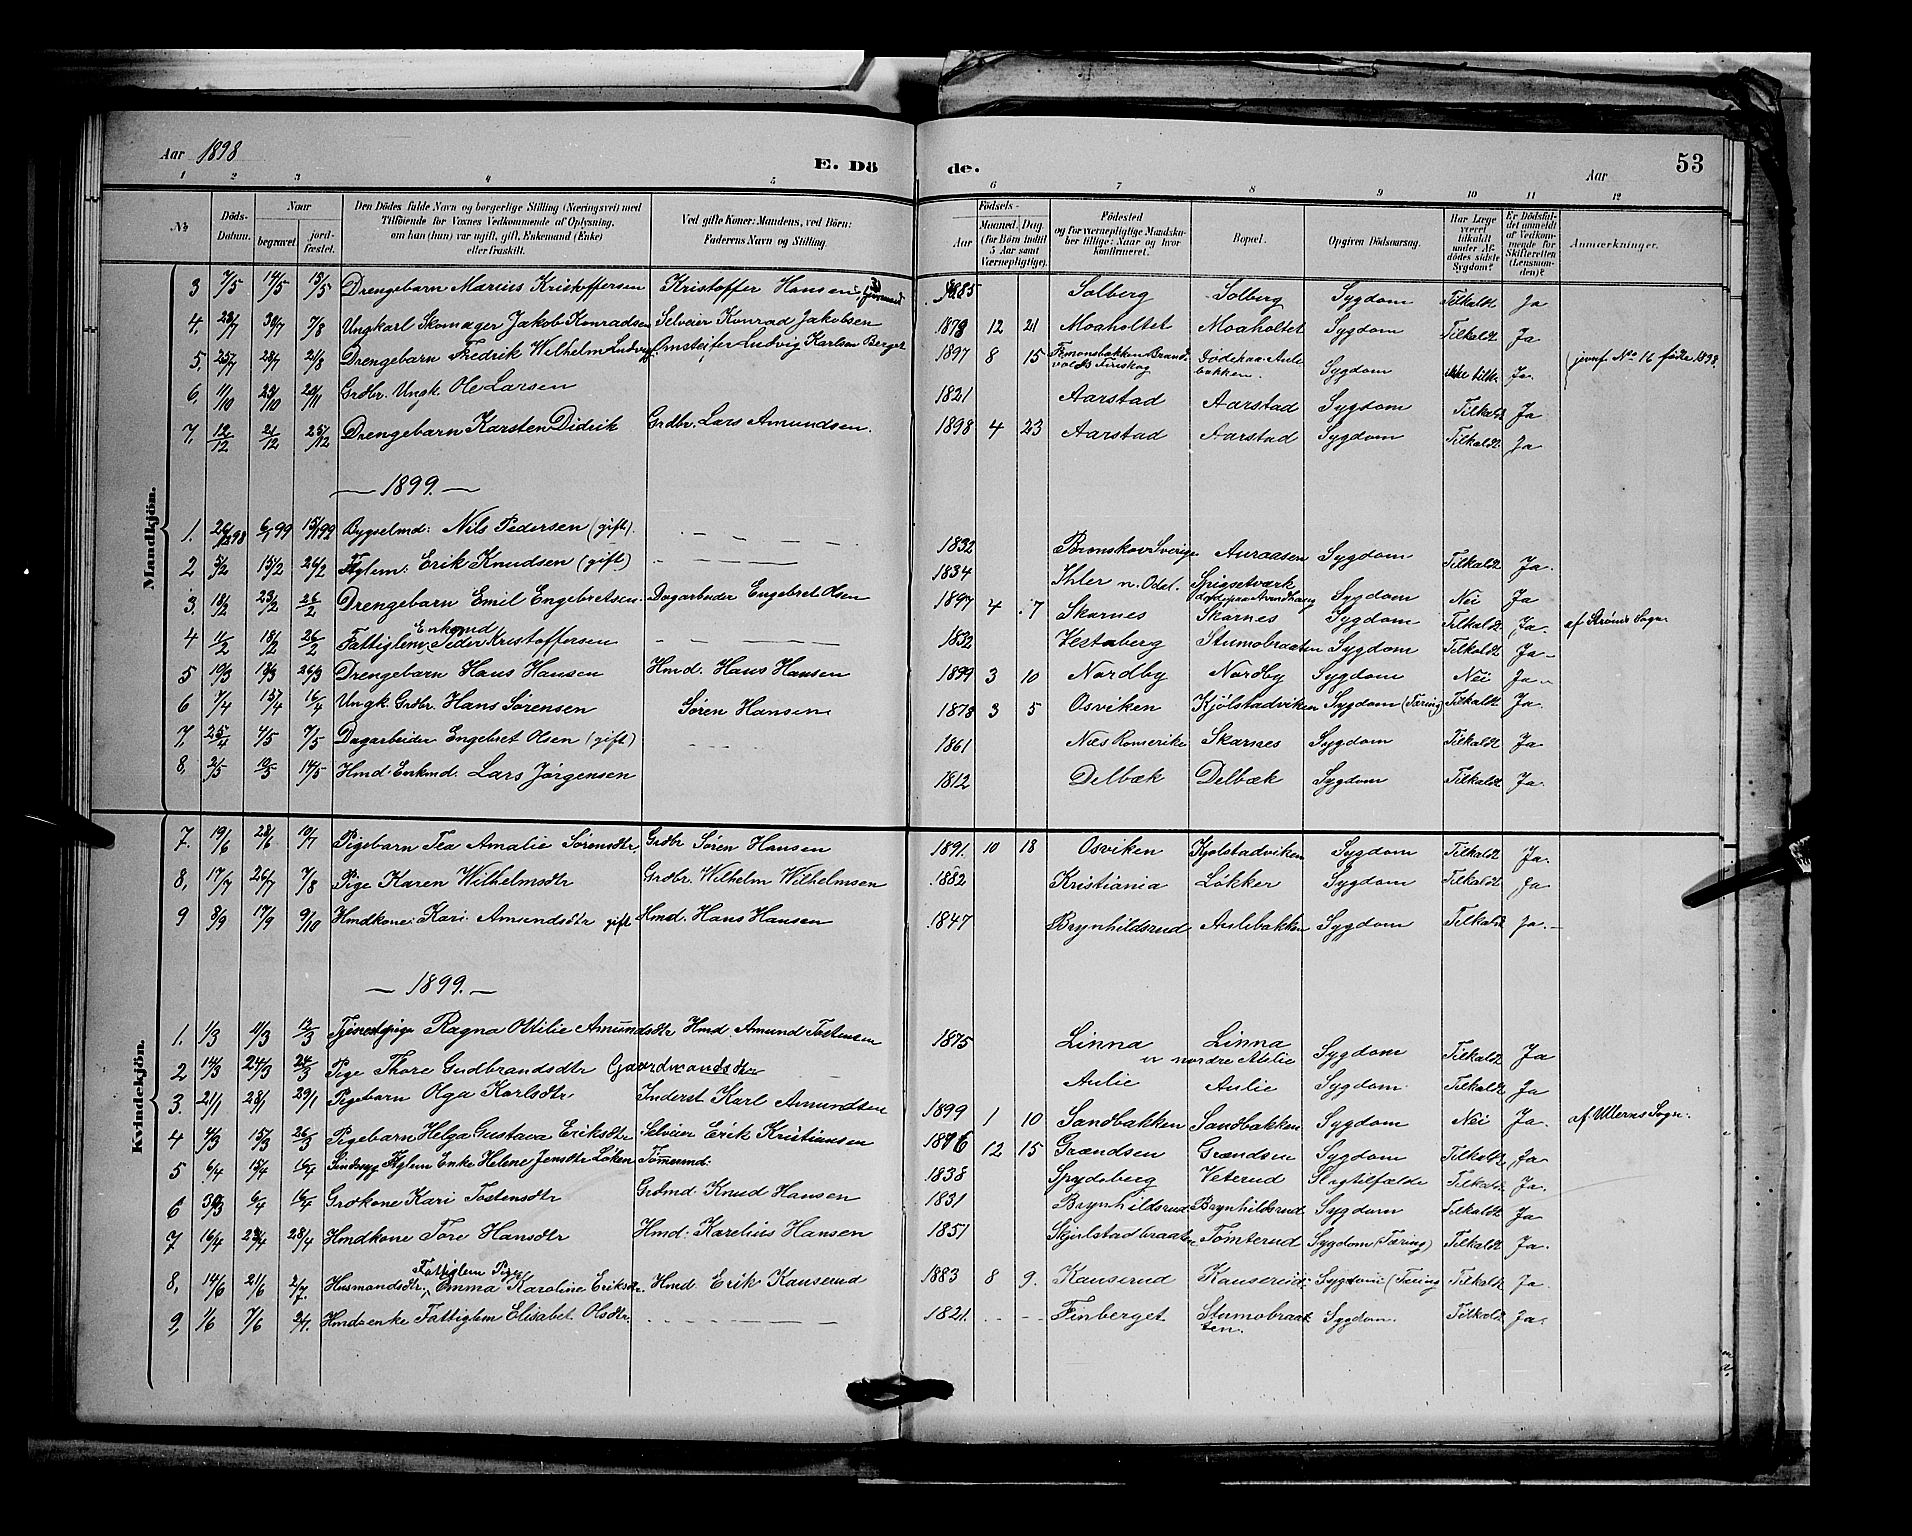 Aar 1898
E. Dö de.
Aar
53
1 2 3 4 5 6 7 8 9 10 11 12
No
Döds-Datum.
Naar begravet. jordfæstet.
Den Dödes fulde Navn og borgerlige Stilling (Næringsvei) med Tilföiende for Voxnes Vedkommende af Oplysning, om han (hun) var ugift, gift, Enkemand (Enke) eller fraskilt.
Ved gifte Koner: Mandens, ved Börn: Faderens Navn og Stilling.
Födsels- Aar Maaned. Dag. (for Börn indtil 5 Aar samt Værnepligtige).
Födested og for værnepligtige Mandskaber tillige: Naar og hvor konfirmeret.
Bopæl.
Opgiven Dödsaarsag.
Har Læge været tilkaldt under Afdödes sidste Sygdom?
Er Dödsfaldet anmeldt af Vedkommende for Skifteretten (Lensmanden)?
Anmærkninger.
Mandkjön.
3 7/5 14/5 15/5 Drengebarn Marius Kristoffersen Kristoffer Hansen 1885 Solberg Solberg Sygdom Tilkaldt Ja
4, 23/7 30/7 7/8 Ungkarl Skomager Jakob Konradsen Selveier Konrad Jakobsen 1878 12 21 Moaholtet Moaholtet Sygdom Tilkaldt Ja
5, 25/7 28/7 21/8 Drengebarn Fredrik Wilhelm Ludvigs. Omstreifer Ludvig Karlsen Berger 1897 8 15 Brandvolds Finskog Sygdom ikke tilk. Ja. jevnf. No 16 fødte 1898.
6, 11/10 23/10 20/11 Grdbr. Ungk. Ole Larsen 1821 Aarstad Aarstad Sygdom Tilkaldt Ja
7, 12/12 21/12 25/12 Drengebarn Karsten Didrik Grdbr. Lars Amundsen. 1898 4 23 Aarstad Aarstad Sygdom Tilkaldt Ja
— 1899. —
1. 26/12 98 6/1 99 15/1 99 Bygselmd: Nils Pedersen (gift). 1832 Sverige Auraasen Sygdom Tilkaldt Ja.
2 5/2 15/2 26/2 Ftglem: Erik Knudsen (gift) 1834 Ihler n. Odal. Spigsetværk Sygdom Nei Ja
3. 18/2 23/2 26/2 Drengebarn Emil Engebretsen Dagarbeider Engebret Olsen 1897 4 7 Skarnes Skarnes Sygdom Tilkaldt Ja. af Strøms Sogn
4 11/2 18/2 26/2 Fattiglem Enkemd Peder Kristoffersen 1832 Vestaberg Stumobraaten Sygdom Tilkaldt Ja-
5 10/3 18/3 26/3 Drengebarn Hans Hansen Hmd. Hans Hansen 1899 3 10 Nordby Nordby Sygdom Nei Ja
6 7/4 15/4 16/4 Ungk. Grdbr. Hans Sørensen Søren Hansen 1878 3 5 Osviken Kjølstadviken Sygdom (Tæring) Tilkaldt Ja.
7, 25/4 4/5 7/5 Dagarbeider Engebret Olsen (gift) 1861 Næs Romerike Skarnes Sygdom Tilkaldt Ja
8, 2/5 10/5 14/5 Hmd. Enkmd. Lars Jørgensen 1812 Delbæk Delbæk Sygdom Tilkaldt Ja.
Kvindekjön.
7. 19/6 28/6 10/7 Pigebarn Tea Amalie Sørensdtr, Grdbr Søren Hansen 1891. 10 18 Osviken Kjølstadviken Sygdom Tilkaldt Ja.
8, 17/7 26/7 7/8 Pige Karen Wilhelmsdtr Grdbr. Wilhelm Wilhelmsen 1882 Kristiania Løkker Sygdom Tilkaldt Ja
9 8/9 17/9 9/10 Hmdkone: Kari Amundsdtr gift Hmd. Hans Hansen 1847 Brynhildsrud Aulebakken Sygdom Tilkaldt Ja.-
— 1899. —
1. 1/3 11/3 12/3 Tjenestepige Ragna Otilie Amundsdtr Hmd Amund Tostensen 1875 Linna Linna Sygdom Tilkaldt Ja
2 14/3 24/3 26/3 Pige Thore Gudbrandsdtr Gaardmandsdtr er nordre Aulie Aulie Aulie Sygdom Tilkaldt Ja
3. 21/1 28/1 29/1 Pigebarn Olga Karlsdtr Inderst Karl Amundsen 1899 1 10 Sandbakken Sandbakken Sygdom Nei Ja. af Ullerns Sogn.
4 4/3 15/3 26/3 Pigebarn Helga Gustava Eriksdtr Selveier Erik Kristiansen 1896 12 15 Grændsen Grændsen Sygdom Tilkaldt Ja
5 6/4 15/4 16/4 Sindssyg Ftglem Enke Helene Jensdtr Løken Tømmermd. 1838 Spydeberg Veterud Slagtilfælde Tilkaldt Ja.
6 30/3 6/4 16/4 Grdkone Kari Tostensdtr Grdmd. Knud Hansen 1831 Brynhildsrud Brynhildsrud Sygdom Tilkaldt Ja
7 16/4 23/4 28/4 Hmdkone Tore Hansdtr Hmd. Karelius Hansen 1851 Skjulstadbraaten Tomterud Sygdom (Tæring) Tilkaldt Ja.
8, 14/6 21/6 2/7. Husmandsdtr, Fattiglem Pige Emma Karoline Eriksdtr. Hmd. Erik Kauserud 1883 8 9. Kauserud Kauserud Sygdom (Tæring Tilkaldt Ja.
9, 1/6 7/6 2/7. Hmdsenke Fattiglem Elisabet Olsdtr. 1821 Finberget Stumobraaten. Sygdom. Tilkaldt Ja.